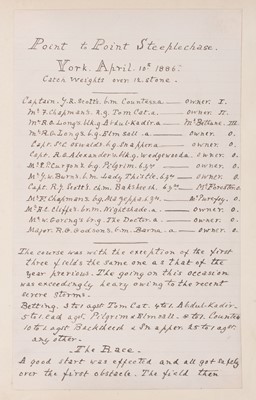 Point to Point Steeplechase.
York. April. 10th 1886.
Catch Weights over 12 stone.
Captain. Y.R. Scott's. b.m. Countess. a ——— owner. I.
Mr F. Chapman's. r.g. Tom Cat. a. ——— owner. II.
Mr R.O. Long's. blk.g. Abdul-Kadir. a ——— III.
Mr R.O. Long's. b.g. Elmsall. a ——— owner. O.
Capt. P.C. Oswald's. b.g. Snapper. a ——— owner. O.
Capt. R.A. Alexander's. blk.g. Wedgwood. a. owner. O.
b.g. Pilgrim. 6yrs ——— owner. O.
Mr Y.W. Burn's. b.m. Lady Thistle. 6yrs — owner. O.
Capt. R.Y. Scott's. ch.m. Backsheesh. 6yrs — O.
Mr F. Chapman's. b.g. Mazeppa. 6yrs — O.
br.m. Nightshade. a ——— owner. O.
br.g. The Doctor. a ——— owner. O.
Major. R.A. Godson's. b.m. Barna. a ——— owner. O.
The course was with the exception of the first
three fields the same one as that of the
year previous. The going on this occasion
was exceedingly heavy owing to the recent
severe storms.
Betting. 3 to 1 agst Tom Cat. 4 to 1. Abdul-Kadir.
5 to 1. each agst. Pilgrim & Elmsall. 8 to 1. Countess
10 to 1 agst Backsheesh & Snapper 12 to 1 agst.
any other.
The Race.
A good start was effected and all got safely
over the first obstacle. The field then